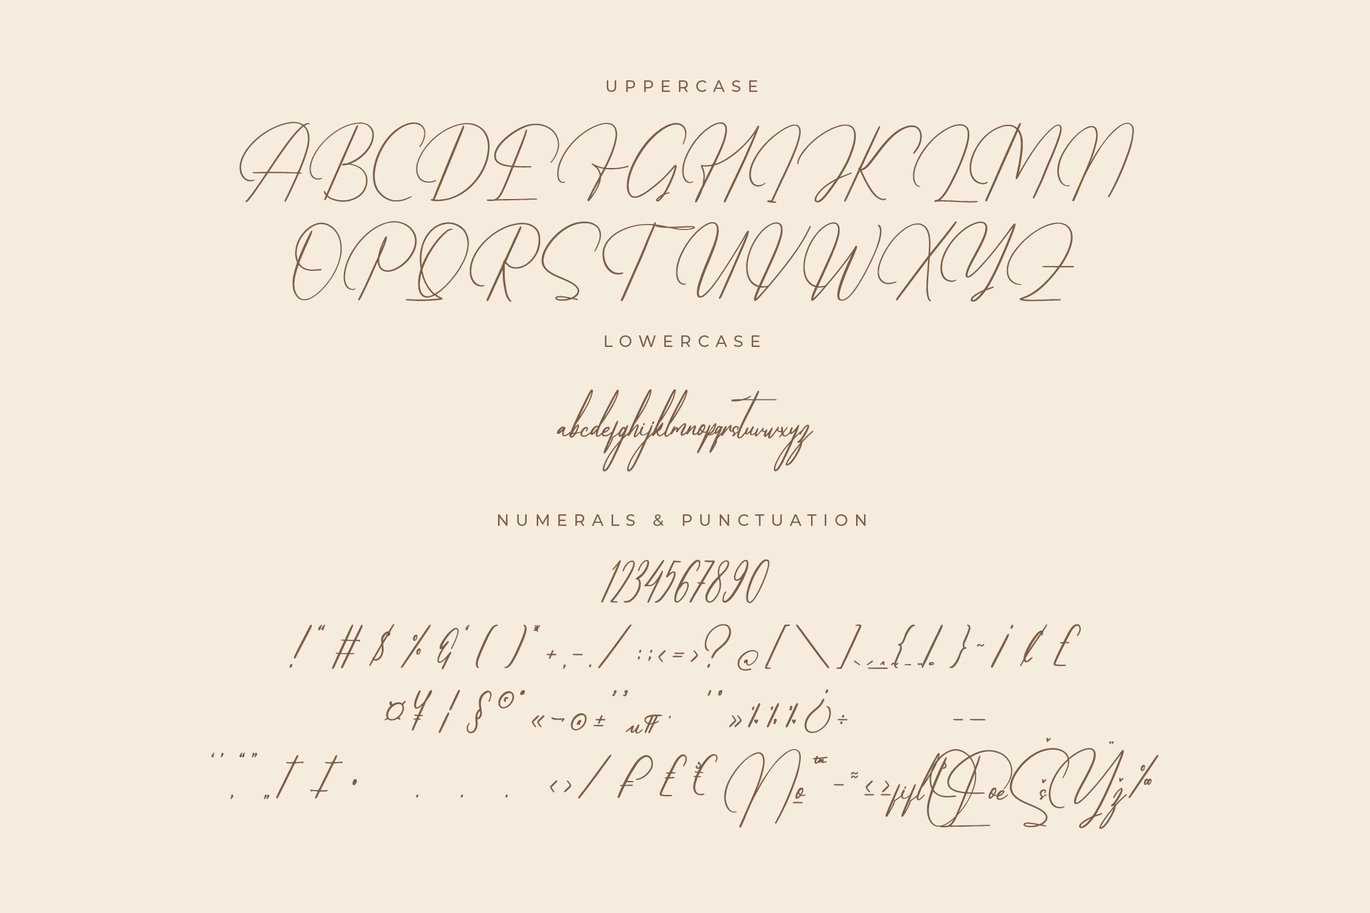 UPPERCASE
ABCDEFGHIJKLMN
OPQRSTUVWXYZ
LOWERCASE
abcdefghijklmnopqrstuvwxyz
NUMERALS & PUNCTUATION
1234567890
!"#$%&'()*+,-./:;<=>?@[\]^_`{|}~¡¢£
¤¥¦§©ª«¬®±²³µ¶·¹º»¼½¾¿÷ ––
‘’‚“”„†‡•...‹›⁄₣₤€№™−≈≤≥fiflŒœŠšŸž‰